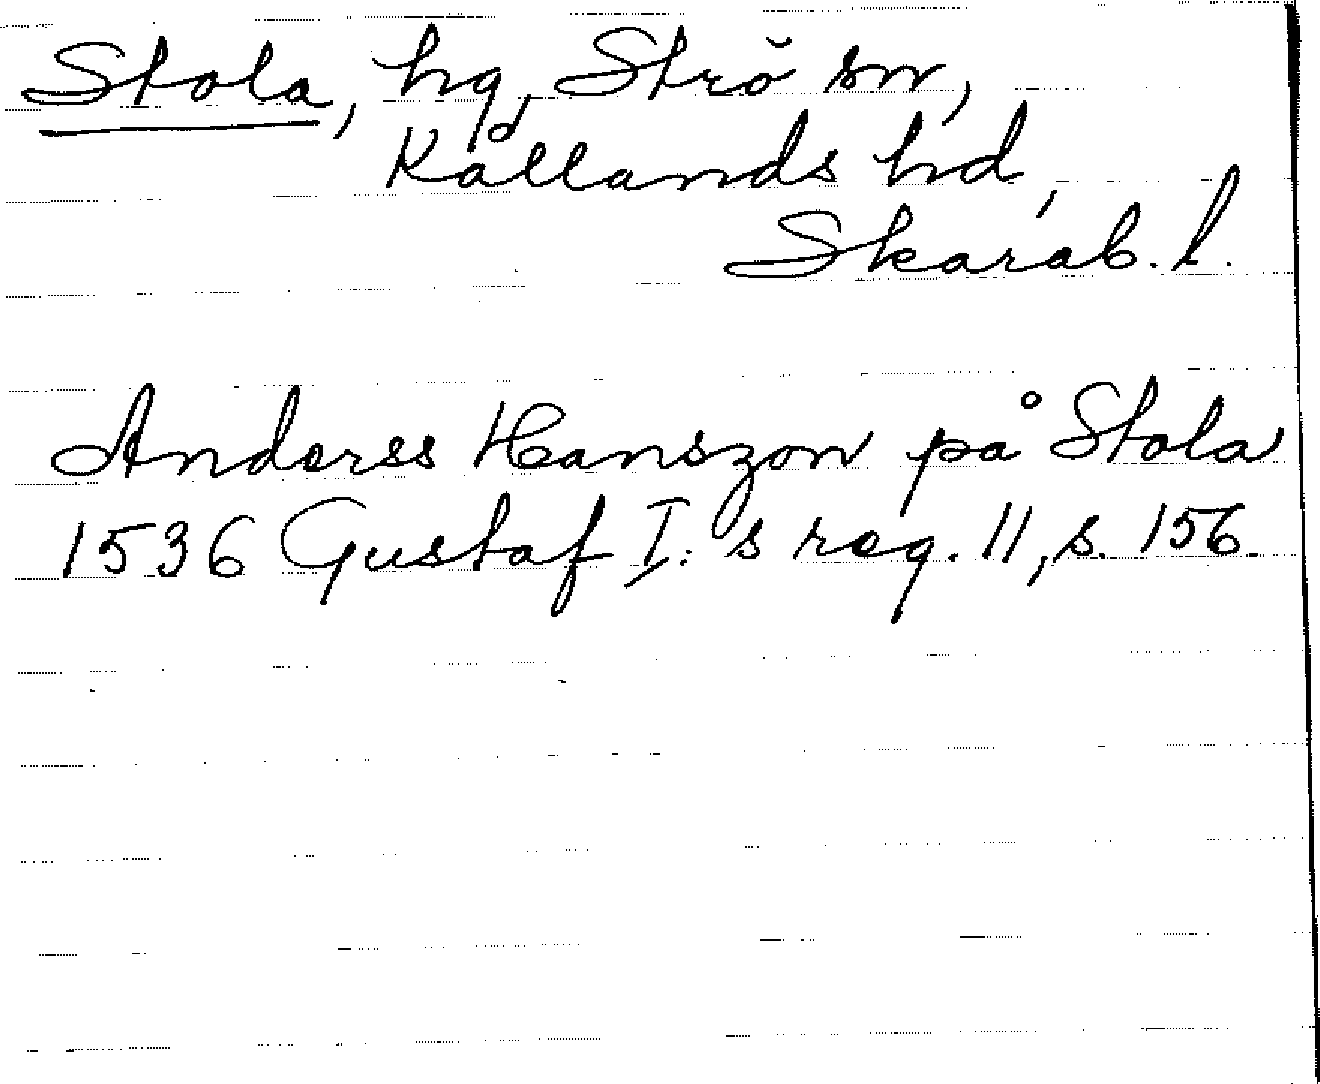 Stola, hg, Strö sn,
Kållands hd,
Skarab. l.
Anderss Hanszon på Stola
1536 Gustaf I:s reg. 11, s. 156.